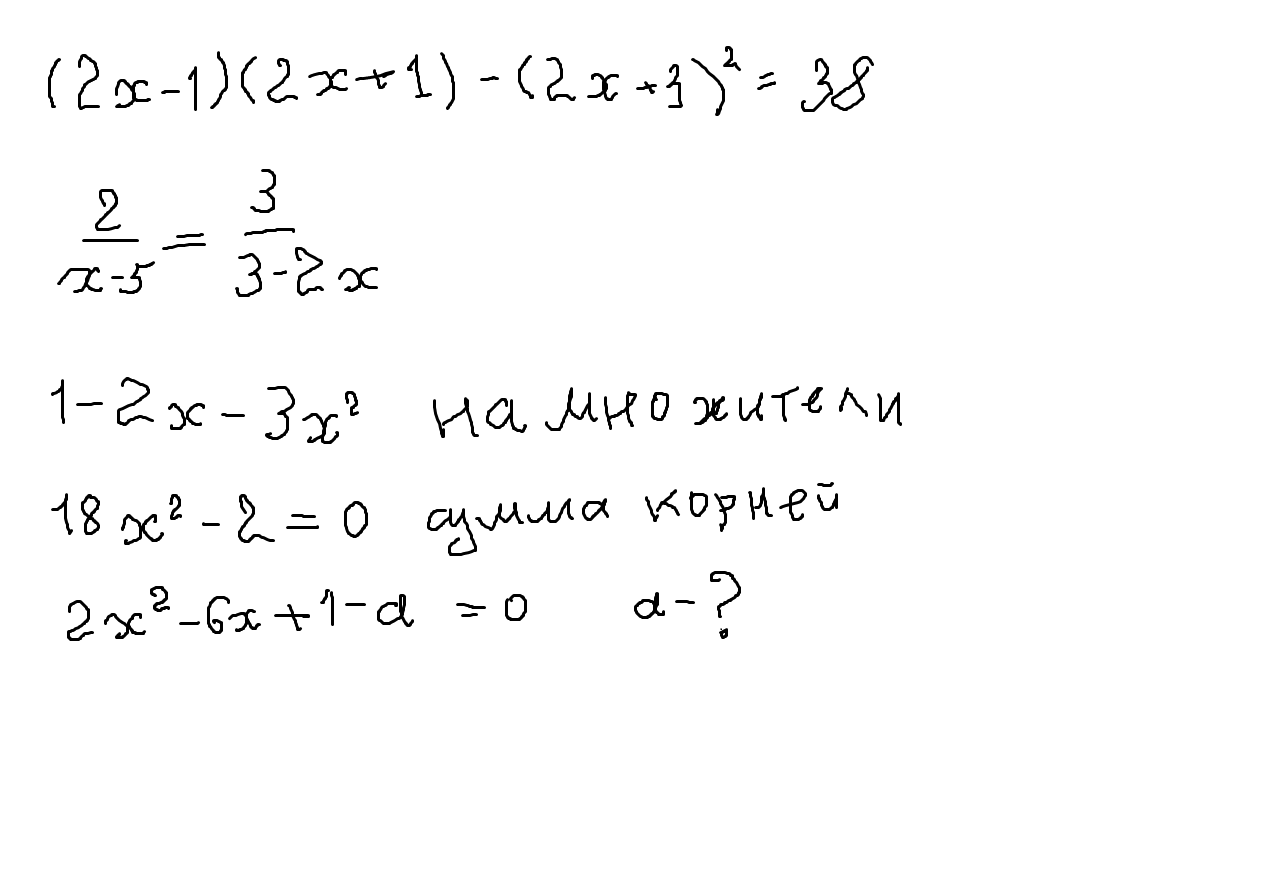 (2x-1)(2x+1)-(2x+3)²=38
2/(x-5) = 3/(3-2x)
1-2x-3x² на множители
18x²-2=0 сумма корней
2x²-6x+1-a =0 a-?